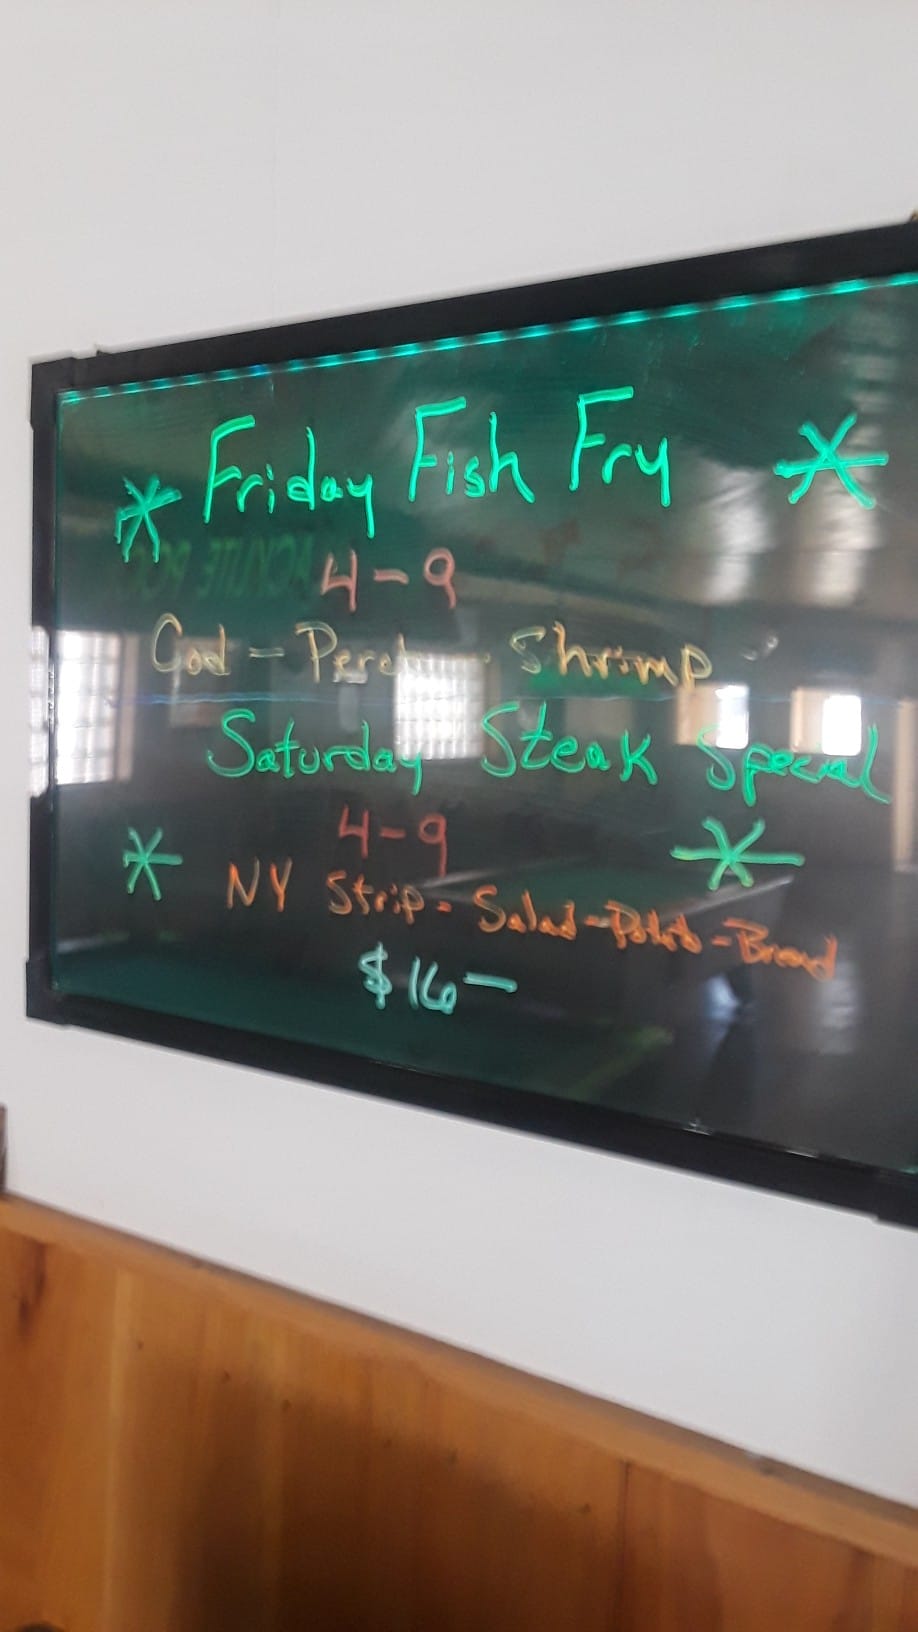 * Friday Fish Fry *
4-9
Cod - Perch - Shrimp
Saturday Steak Special
4-9
* NY Strip - Salad - Potato - Bread *
$16-